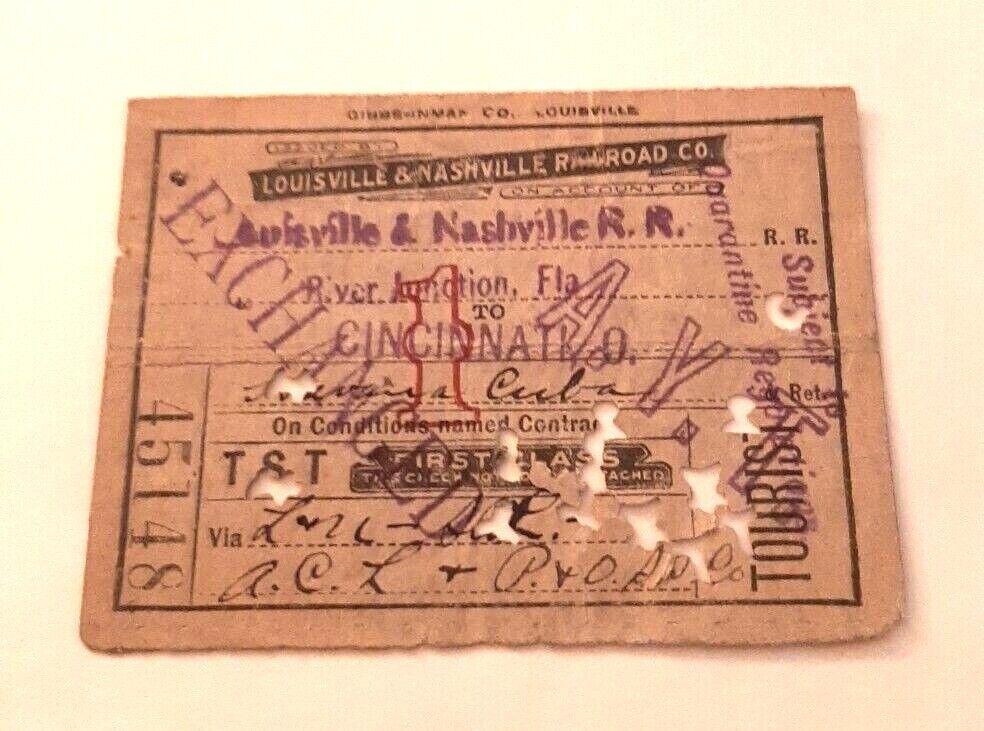 CO. LOUISVILLE
ISSUED BY
LOUISVILLE & NASHVILLE RAILROAD CO.
ON ACCOUNT OF
Louisville & Nashville R. R. R. R.
River Junction, Fla
TO
CINCINNATI, O.
Havana Cuba & Ret
On Conditions named Contract
T & T FIRST CLASS
THIS CHECK NOT DETACHED
Via L & N -
A. C. L & P. & O. Co
45148
TOURIST
EXCHANGED
1
Subject to
Quarantine Regulations